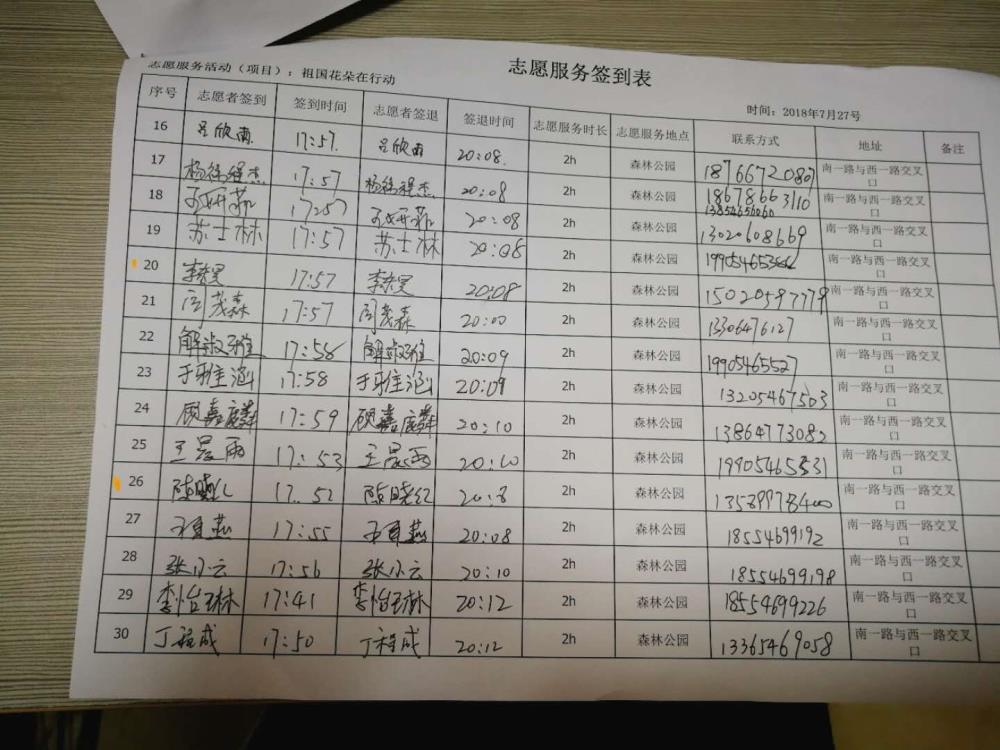 志愿服务签到表
志愿服务活动（项目）：祖国花朵在行动
时间：2018年7月27号
序号 志愿者签到 签到时间 志愿者签退 签退时间 志愿服务时长 志愿服务地点 联系方式 地址 备注
16 吕欣雨 17:57. 吕欣雨 20:08. 2h 森林公园 18766672080 南一路与西一路交叉口
17 17:57 20:08 2h 森林公园 18678663110 13854656060 南一路与西一路交叉口
18 17:57 20:08 2h 森林公园 13020608669 南一路与西一路交叉口
19 苏士林 17:57 苏士林 20:08 2h 森林公园 南一路与西一路交叉口
20 17:57 20:08 2h 森林公园 15020597779 南一路与西一路交叉口
21 周茂森 17:57 周茂森 20:00 2h 森林公园 13306476127 南一路与西一路交叉口
22 解淑雅 17:58 解淑雅 20:09 2h 森林公园 19905465527 南一路与西一路交叉口
23 于雅涵 17:58 于雅涵 20:09 2h 森林公园 13205467503 南一路与西一路交叉口
24 顾嘉麟 17:59 顾嘉麟 20:10 2h 森林公园 13864773082 南一路与西一路交叉口
25 王晨雨 17:53 王晨雨 20:10 2h 森林公园 19905465531 南一路与西一路交叉口
26 陈晓红 17..52 陈晓红 20:8 2h 森林公园 13589978400 南一路与西一路交叉口
27 17:55 20:08 2h 森林公园 18554699192 南一路与西一路交叉口
28 张小云 17:56 张小云 20:10 2h 森林公园 18554699198 南一路与西一路交叉口
29 李怡琳 17:41 李怡琳 20:12 2h 森林公园 18554699226 南一路与西一路交叉口
30 丁程成 17:50 丁程成 20:12 2h 森林公园 13365469058 南一路与西一路交叉口